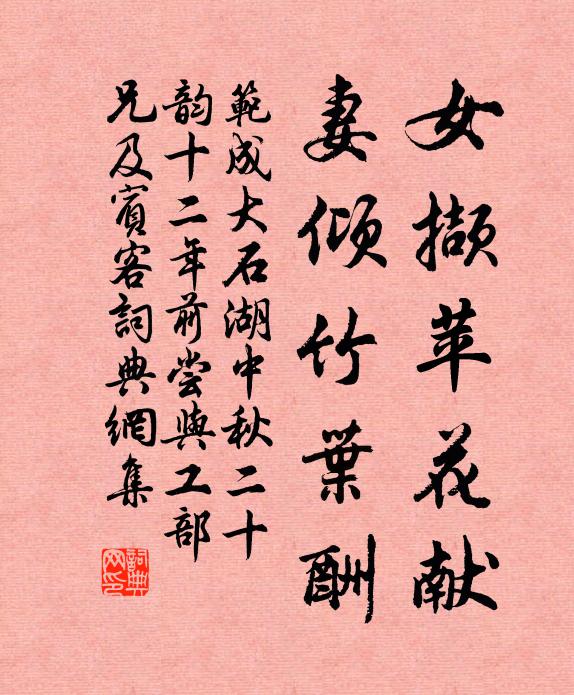 女擷苹花献
妻倾竹葉酬
範成大石湖中秋二十
韵十二年前尝與工部
兄及賓客詞典網集
詞典网印